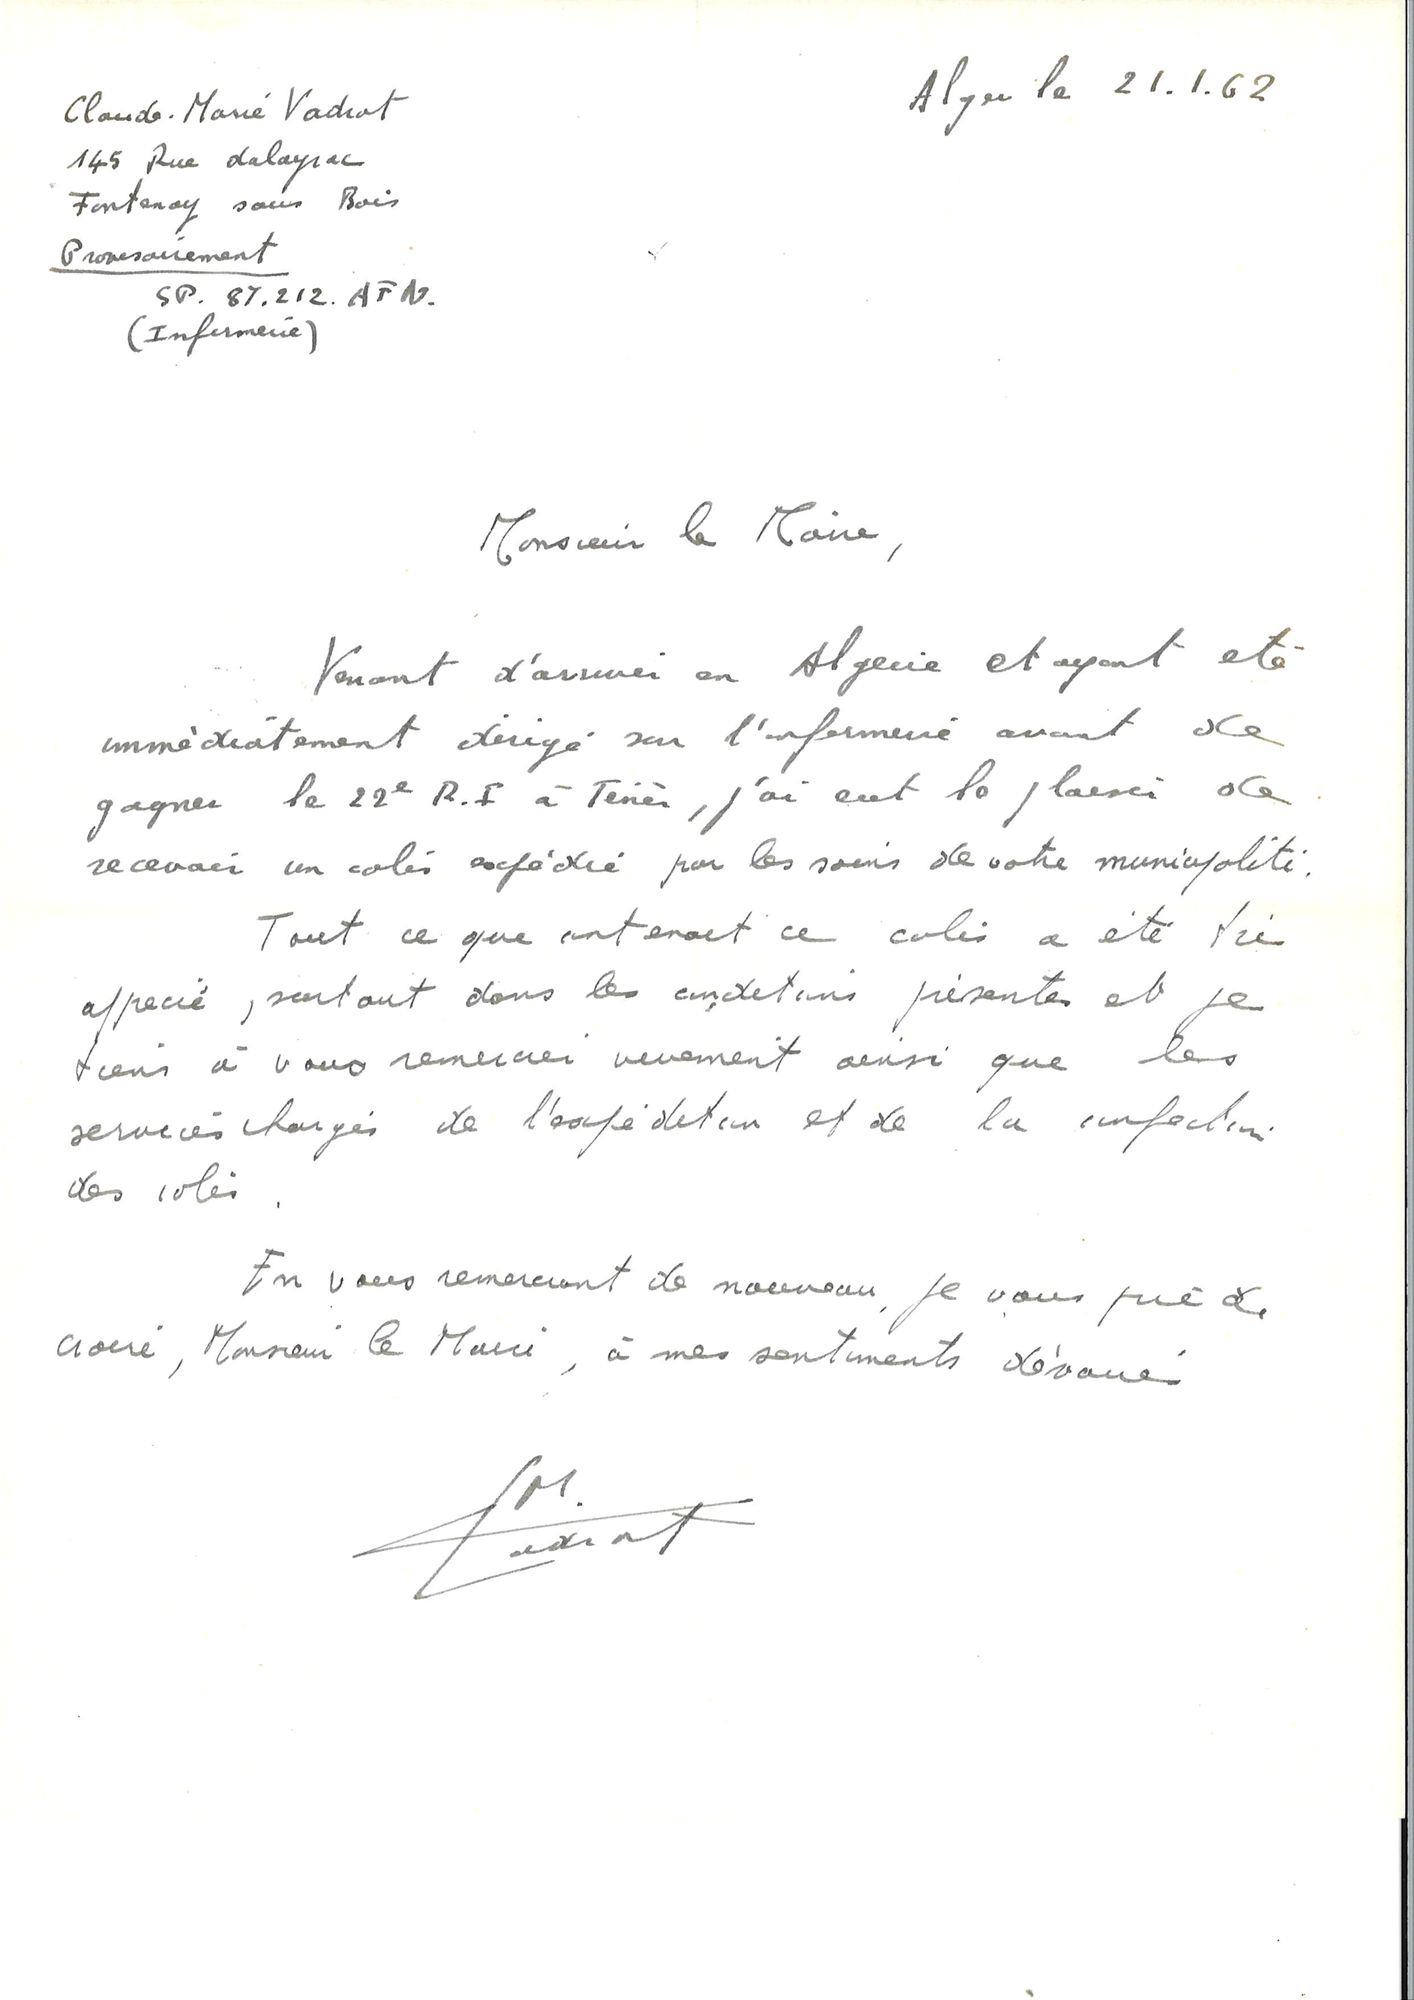 Alger le 21.1.62
Claude-Marie Vadrot
145 Rue dalayrac
Fontenay sous Bois
Provisoirement
SP. 87.212. AFN.
(Infirmerie)
Monsieur le Maire,
Venant d'arriver en Algerie et ayant eté
immédiatement dirigé sur l'infirmerie avant de
gagner le 22e R.I à Ténès, j'ai eut le plaisir de
recevoir un colis expédié par les soins de votre municipalité.
Tout ce que contenait ce colis a été très
apprecié, surtout dans les conditions présentes et je
tiens à vous remercier vivement ainsi que les
services chargés de l'expédition et de la confection
des colis.
En vous remerciant de nouveau, je vous prie de
croire, Monsieur le Maire, à mes sentiments dévoués
CM.
Vadrot